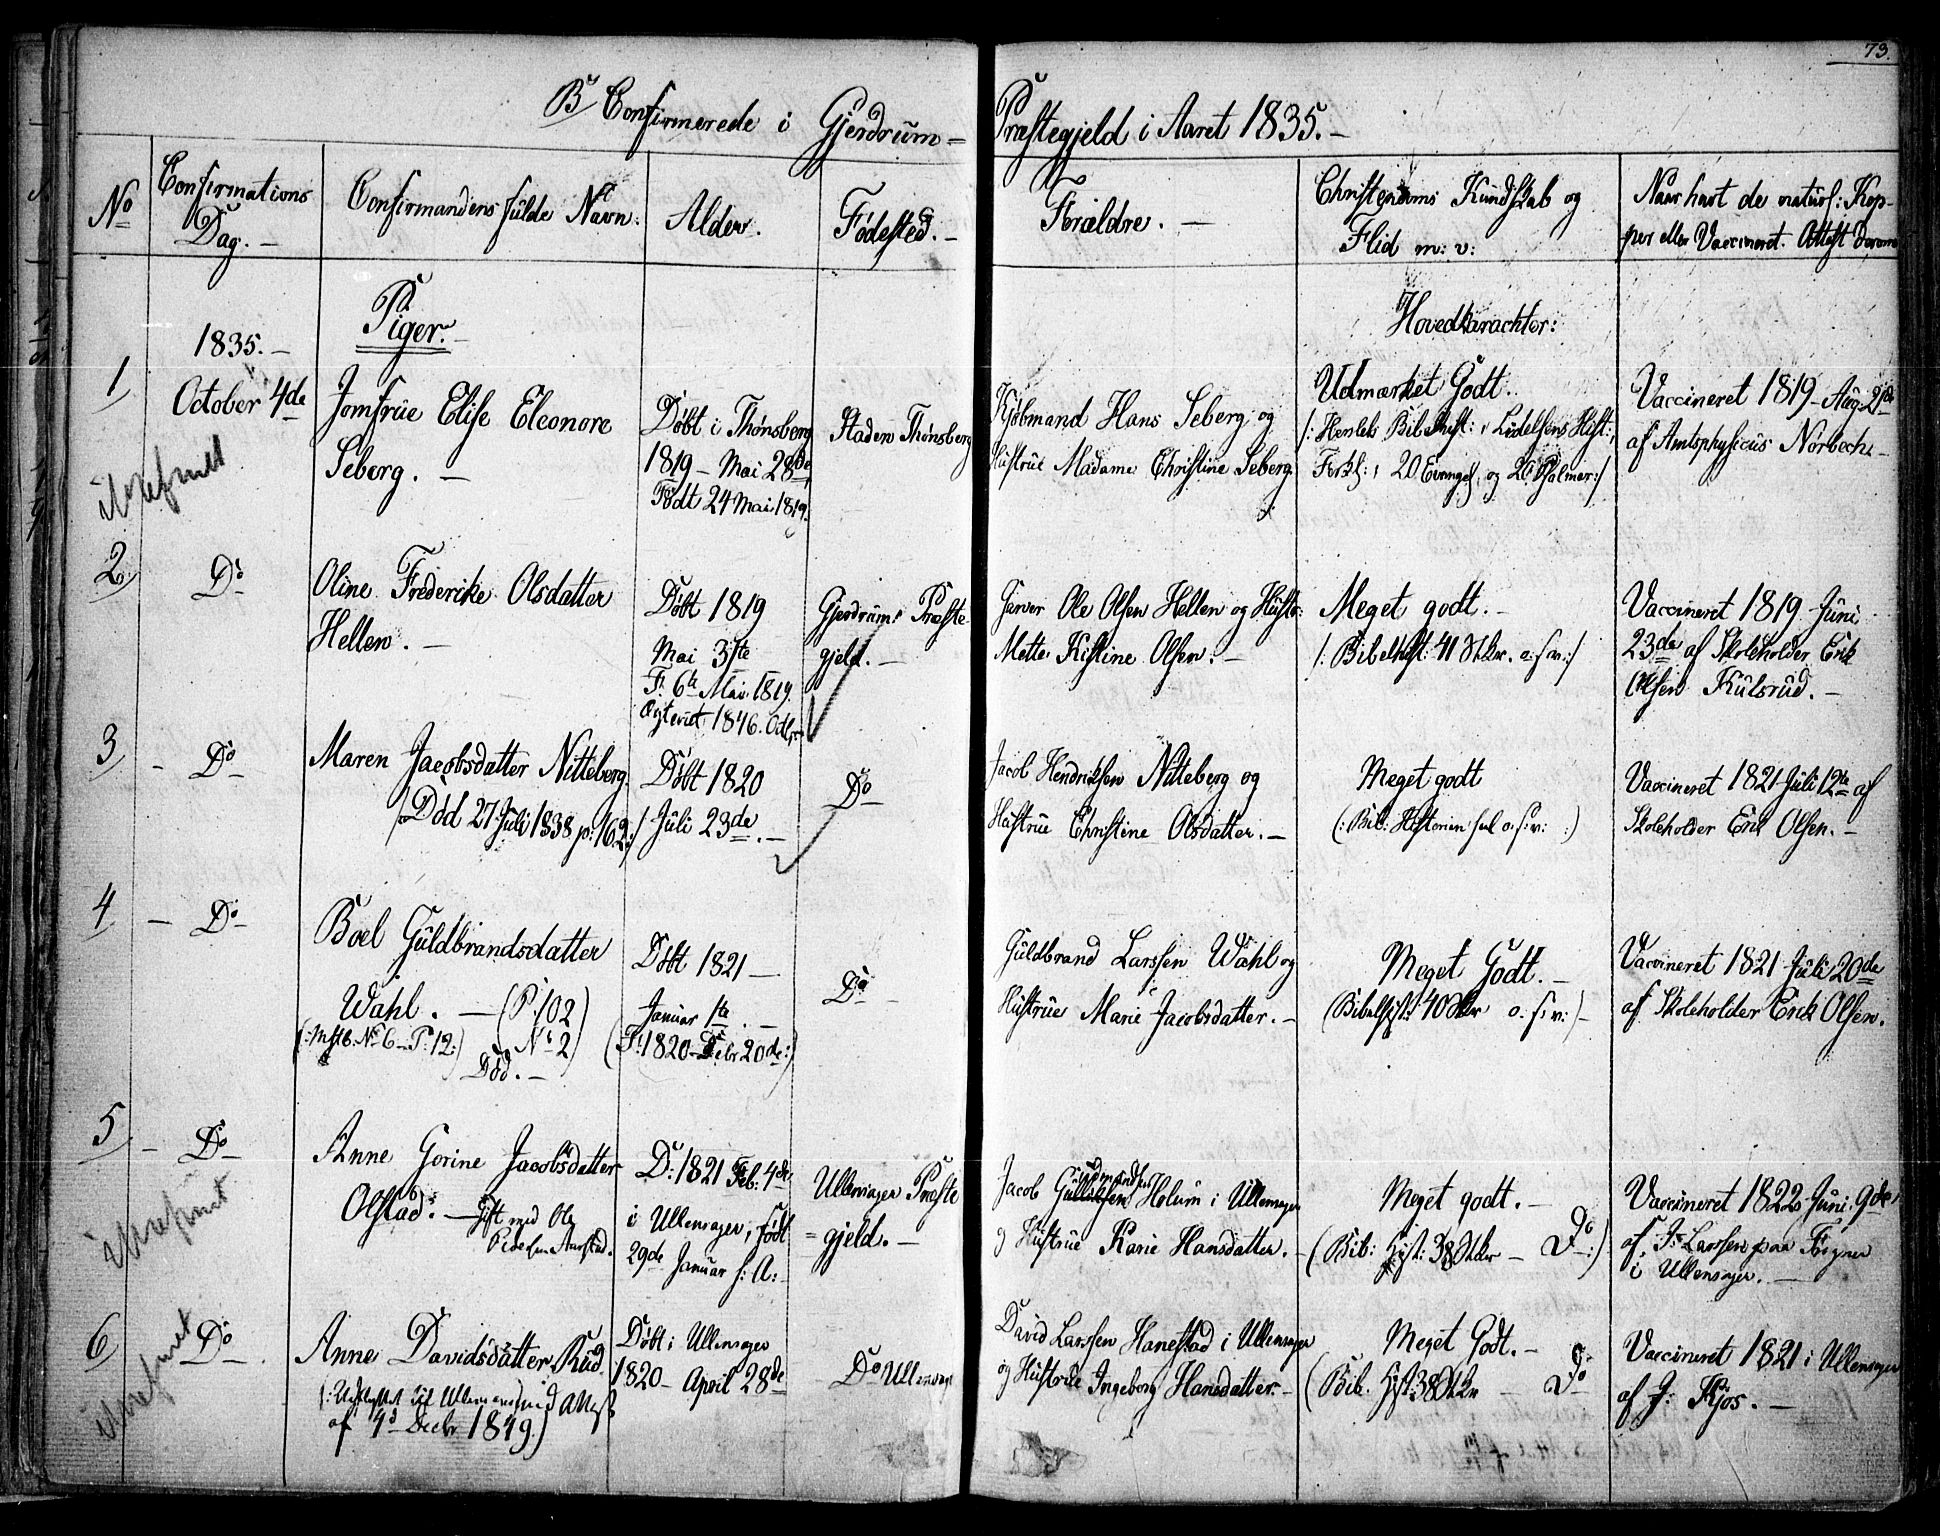 73.
B, Confirmerede i Gjerdrum = Præstegjeld i Aaret 1835. -
No
Confirmations
Dag. -
Confirmandens fulde Navn.
Alder.
Fødested. -
Forældre. -
Christendoms Kundskab og
Flid m: v:
Naar havt de naturl: Kop-
per eller Vaccineret. Attest derom
1835. -
Piger. -
Hovedkarachter:
1,
October 4de
Jomfrue Elise Eleonore
Seberg. -
Døbt i Thønsberg
1819 - Mai 28de
Født 24 Mai 1819.
Staden Thønsberg
Kjøbmand Hans Seberg og
Hustrue Madame Christine Seberg
Udmærket Godt.
/: Herslebs Bibelhist: , Lidelsens Hist:,
Forkl: , 20 Evangel, og 26 Psalmer:/
Vaccineret 1819 - Aug. 2de
af Amtsphysicus Norbech. -
2,
Do
Oline Frederike Olsdatter
Hellen. -
Døbt 1819
Mai 31te
F. 6te Mai 1819.
Ægteviet 1846. Octbr
Gjerdrums Præste-
gjeld. -
Garver Ole Olsen Hellen og Hustr:
Mette Kistine Olsen. -
Meget godt. -
/: Bibelhist: 41 Stkr. o: s: v:/
Vaccineret 1819 Juni
23de af Skoleholder Erik
Olsen Kulsrud. -
3,
- Do
Maren Jacobsdatter Nitteberg
/Død 27 Juli 1838 p: 162:/
Døbt 1820
Juli 23de. -
Do
Jacob Hendriksen Nitteberg og
Hustrue Christine Olsdatter. -
Meget godt
(: Bib: Historien hel o: s: v: :)
Vaccineret 1821 Juli 12te af
Skoleholder Erik Olsen. -
4,
- Do
Boel Guldbrandsdatter
Wahl. - (P: 102)
No 2
(: No 6 - P: 12:)
Død. -
Døbt 1821 -
Januar 1te. -
(F: 1820 - Debr 20de:)
Do
Guldbrand Larssen Wahl og
Hustrue Marie Jacobsdatter. -
Meget Godt. -
(Bibelhist: 40 Stkr o: s: v:) -
Vaccineret 1821 Juli 20de
af Skoleholder Erik Olsen.
5,
- Do
Anne Gorine Jacobsdatter
Olstad. - Gift med Ole
Pedersen Aarstad.
D: 1821 Feb: 4de
i Ullensager, født
29de Januar s: A: -
Ullensager Præste
= gjeld. -
Jacob Gudmundsen Holum i Ullensager
og Hustrue Karie Hansdatter. -
Meget godt. -
(Bib: Hist: 38 Stkr - Do :)
Vaccineret 1822 Juni 9de,
af J: Larssen paa Fogner
i Ullensager. -
6,
Do
Anne Davidsdatter Rud
(: Udflyttet til Ullensager med Attest
af 4d Decbr 1849.)
Døbt i Ullensager
1820 - April 28de
Do Ullensager
David Larssen Hanestad i Ullensager
og Hustrue Ingeborg Hansdatter -
Meget Godt. -
(Bib. Hist: 38 Stkr - Do
Vaccineret 1821 i Ullensager
af J: Kjos. -